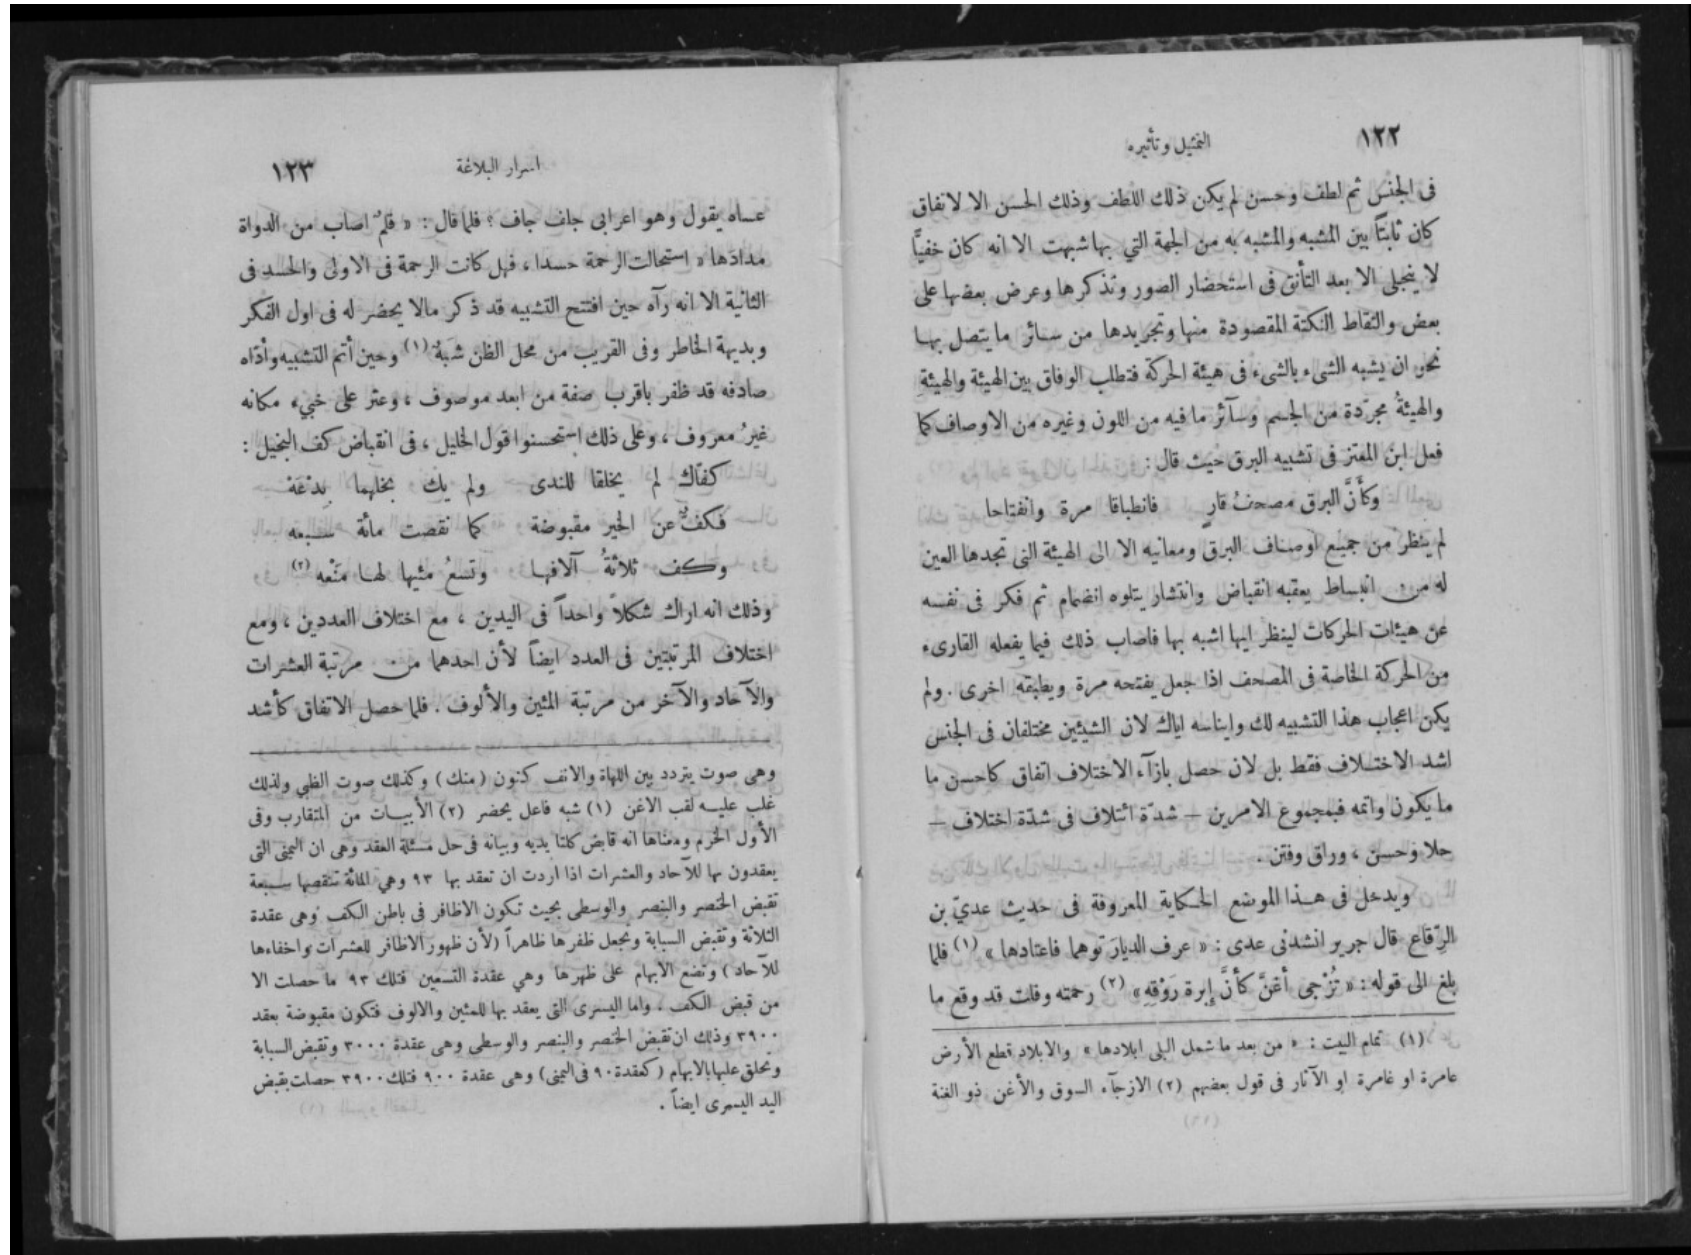 ١٢٢
التمثيل وتأثيره
فى الجنس ثم لطف وحسن لم يكن ذلك اللطف وذلك الحسن الا لاتفاق
كان ثابتاً بين المشبه والمشبه به من الجهة التي بها شبهت الا انه كان خفيًّا
لا ينجلى الا بعد التأنق فى استحضار الصور وتذكرها وعرض بعضها على
بعض والتقاط النكتة المقصودة منها وتجريدها من سائر ما يتصل بها
نحو ان يشبه الشىء بالشىء فى هيئة الحركة فتطلب الوفاق بين الهيئة والهيئةِ
والهيئةُ مجرّدة من الجسم وسآئر ما فيه من اللون وغيره من الاوصاف كما
فعل ابن المعتز فى تشبيه البرق حيث قال :
وكأنَّ البرق مصحفُ قارٍ فانطباقا مرة وانفتاحا
لم ينظر من جميع اوصاف البرق ومعانيه الا الى الهيئة التى تجدها العين
له من انبساط يعقبه انقباض وانتشار يتلوه انضمام ثم فكر فى نفسه
عن هيئات الحركات لينظر ايها اشبه بها فاصاب ذلك فيما يفعله القارىء
من الحركة الخاصة فى المصحف اذا جعل يفتحه مرة ويطبقه اخرى . ولم
يكن اعجاب هذا التشبيه لك وايناسه اياك لان الشيئين مختلفان فى الجنس
اشد الاختلاف فقط بل لان حصل بازآء الاختلاف اتفاق كاحسن ما
ما يكون واتمه فبمجموع الامرين — شدّة ائتلاف فى شدّة اختلاف —
حلا وحسن ، وراق وفتن .
ويدخل فى هذا الموضع الحكاية المعروفة فى حديث عديّ بن
الرِّقاع قال جرير انشدنى عدى : « عرف الديارَ توهما فاعتادها » (١) فلما
بلغ الى قوله : « تُزْجى أغنَّ كأنَّ إبرة رَوْقِهِ » (٢) رحمته وقلت قد وقع ما
(١) تمام البيت : « من بعد ما شمل البلى ابلادها » والابلاد قطع الأرض
عامرة او غامرة او الآثار فى قول بعضهم (٢) الازجآء السوق والأغن ذو الغنة
اسرار البلاغة
١٢٣
عساه يقول وهو اعرابى جلف جاف ؟ فلما قال : « قلمٌ اصاب من الدواة
مدادَها » استحالت الرحمة حسدا ، فهل كانت الرحمة فى الاولى والحسد فى
الثانية الا انه رآه حين افتتح التشبيه قد ذكر مالا يحضر له فى اول الفكر
وبديهة الخاطر وفى القريب من محل الظن شَبَهٌ (١) وحين أتم التشبيه وأدّاه
صادفه قد ظفر باقرب صفة من ابعد موصوف ، وعثر على خبيء مكانه
غيرُ معروف ، وعلى ذلك استحسنوا قول الخليل ، فى انقباض كف البخيل :
كفاك لم يخلقا للندى ولم يك بخلهما بِدْعَهْ
فكفٌّ عن الخير مقبوضة كما نقصت مائة سبعه
وكف ثلاثةُ آلافها وتسعُ مئيها لها مَنْعه (٢)
وذلك انه اراك شكلاً واحداً فى اليدين ، مع اختلاف العددين ، ومع
اختلاف المرتبتين فى العدد ايضاً لأن احدهما من مرتبة العشرات
والآحاد والآخر من مرتبة المئين والألوف . فلما حصل الاتفاق كأشد
وهى صوت يتردد بين اللهاة والانف كنون ( منك ) وكذلك صوت الظبي ولذلك
غلب عليه لقب الاغن (١) شبه فاعل يحضر (٢) الأبيات من المتقارب وفى
الأول الخرم ومعناها انه قابض كلتا يديه وبيانه فى حل مسئلة العقد وهى ان اليمنى التى
يعقدون بها للآحاد والعشرات اذا اردت ان تعقد بها ٩٣ وهي المائة تنقصها سبعة
تقبض الخنصر والبنصر والوسطى بحيث تكون الاظافر فى باطن الكف وهى عقدة
الثلاثة وتقبض السبابة وتجعل ظفرها ظاهراً ( لأن ظهور الاظافر للعشرات واخفاءها
للآحاد ) وتضع الابهام على ظهرها وهي عقدة التسعين فتلك ٩٣ ما حصلت الا
من قبض الكف . واما اليسرى التى يعقد بها للمئين والالوف فتكون مقبوضة بعقد
٣٩٠٠ وذلك ان تقبض الخنصر والبنصر والوسطى وهى عقدة ٣٠٠٠ وتقبض السبابة
وتحلق عليها بالابهام ( كعقدة ٩٠ فى اليمنى ) وهى عقدة ٩٠٠ فتلك ٣٩٠٠ حصلت بقبض
اليد اليسرى ايضاً .